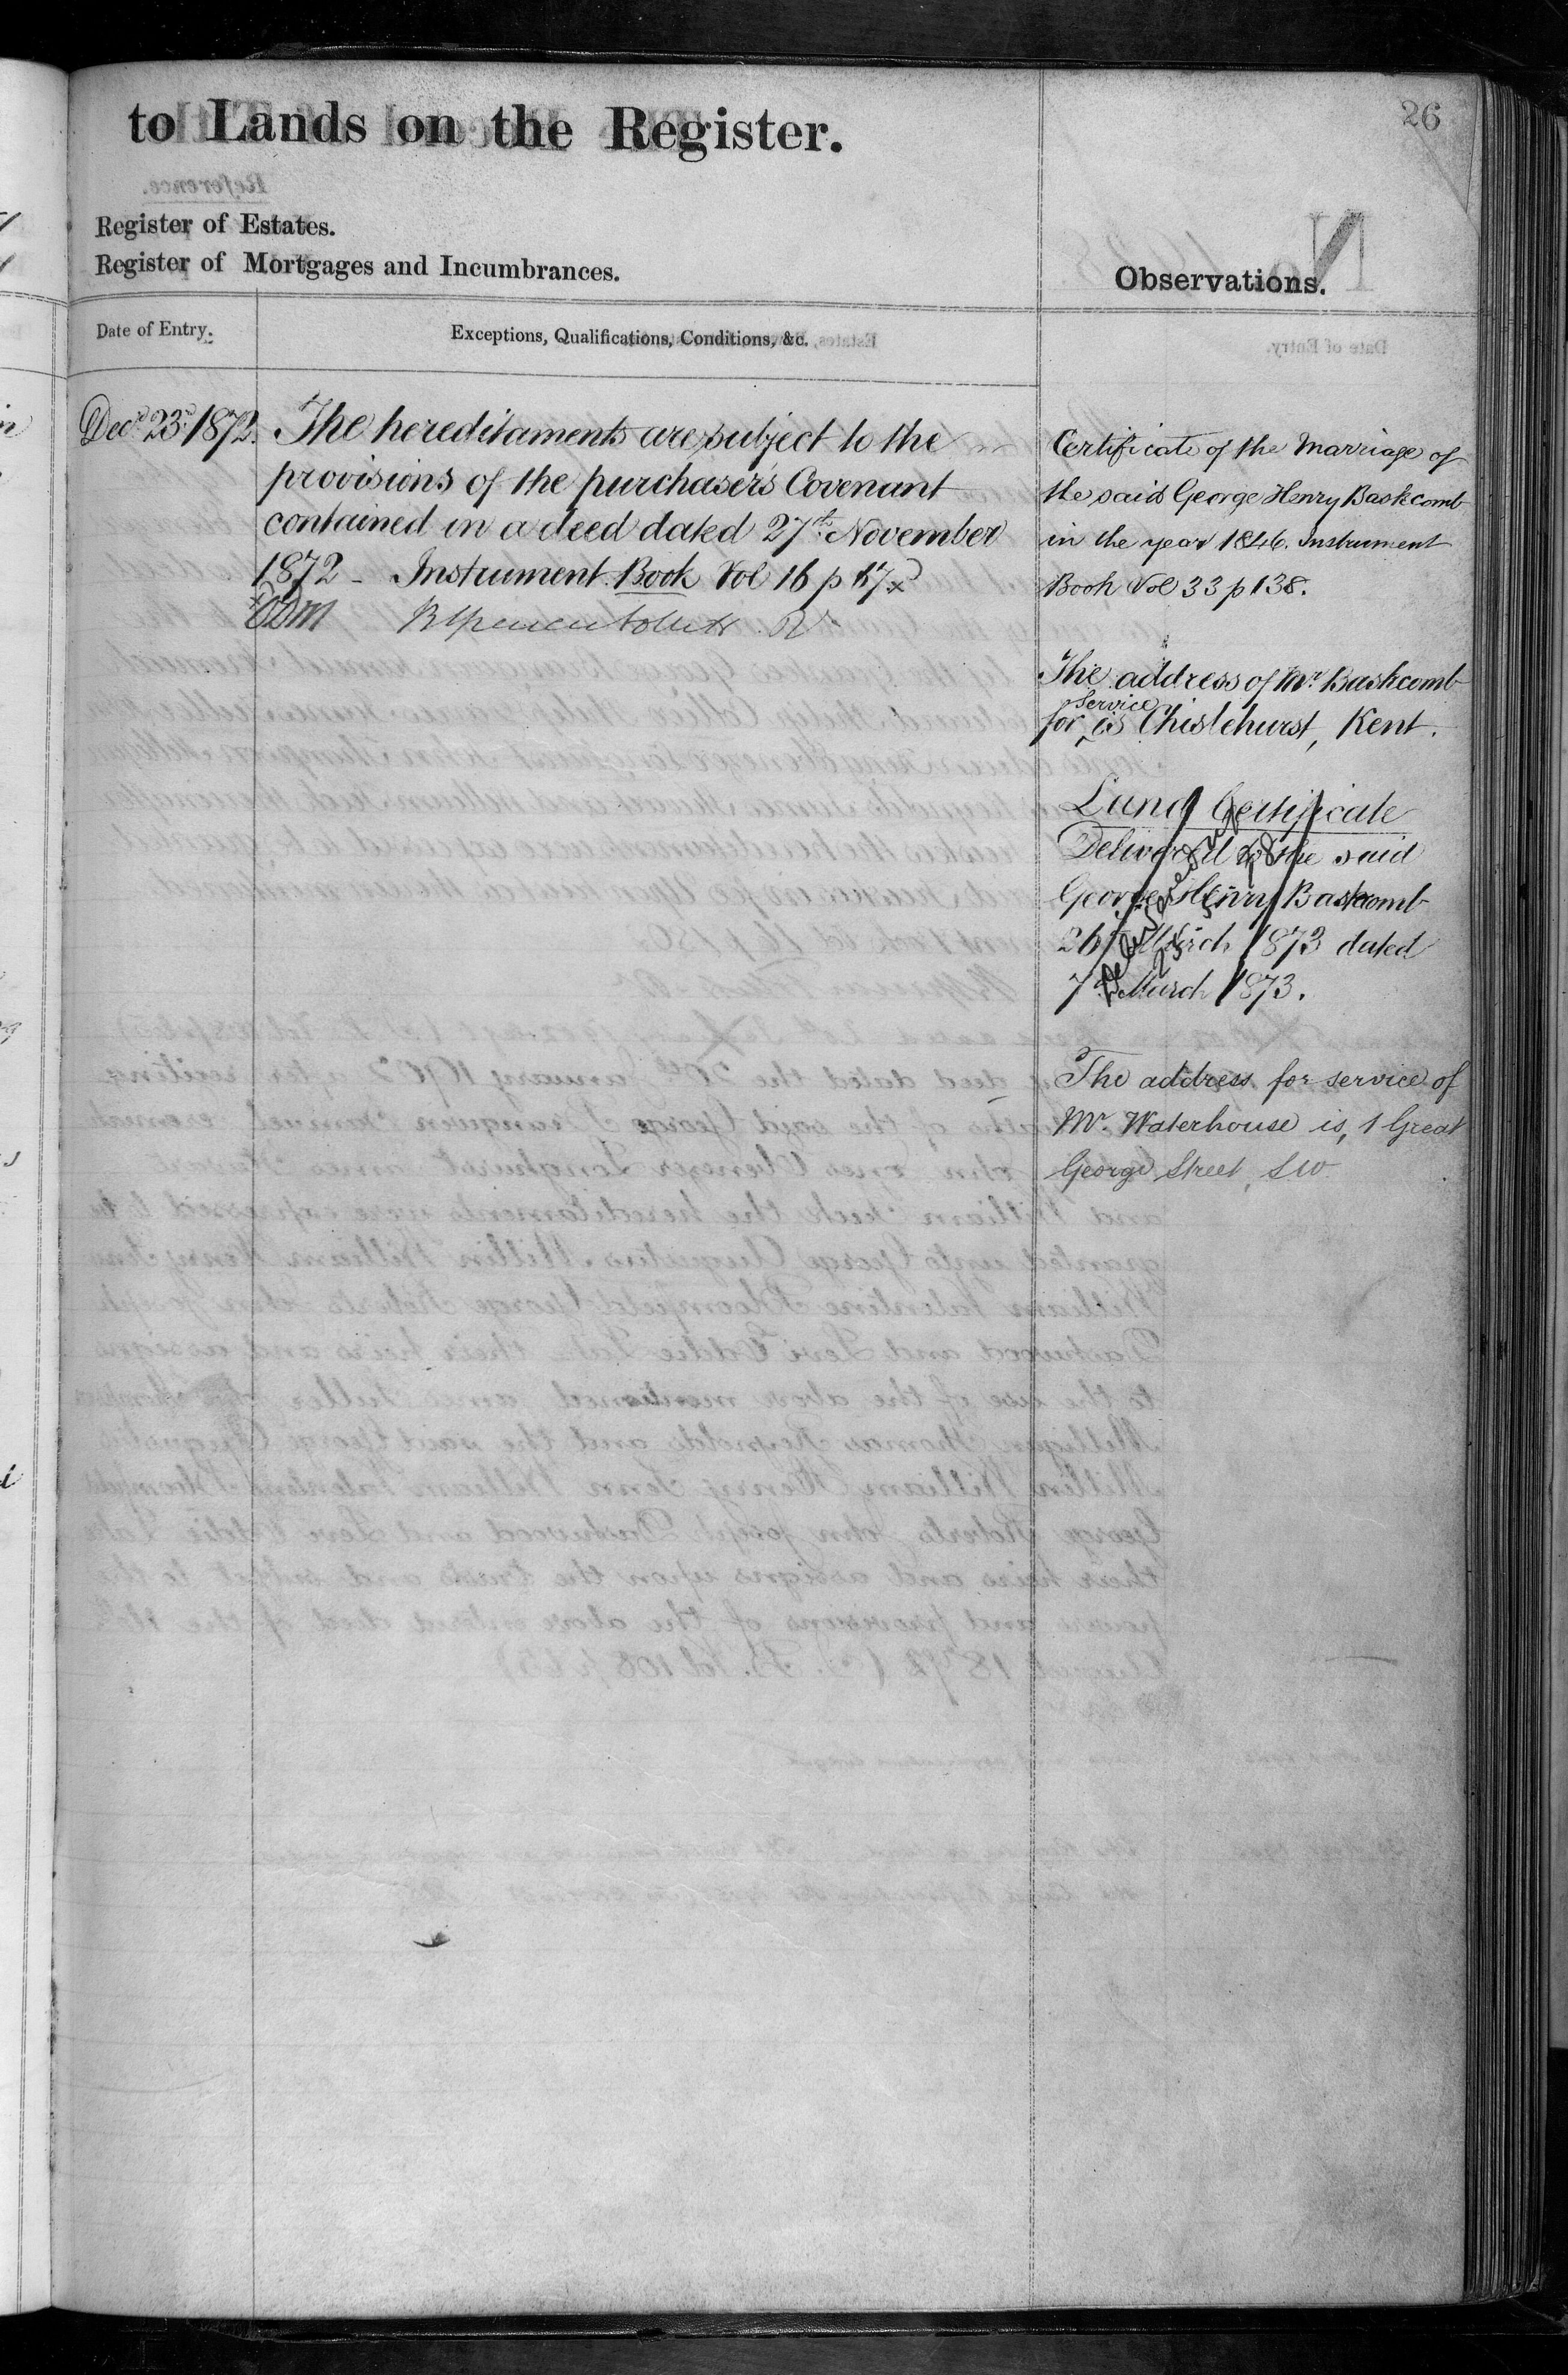 26
to Lands on the Register.
Register of Estates.
Register of Mortgages and Incumbrances.
Observations.
Date of Entry.
Exceptions, Qualifications, Conditions, &c.
Decr 23rd 1872.
The hereditaments are subject to the
provisions of the purchaser's Covenant
contained in a deed dated 27th November
1872 - Instrument Book Vol 16 p
Certificate of the Marriage of
the said George Henry Baskcomb
in the year 1846. Instrument
Book Vol 33 p 138.
The address of Mr. Baskcomb
for service is Chislehurst, Kent.
Land Certificate
Delivered to the said
George Henry Baskcomb
26th March 1873 dated
7th March 1873.
The address for service of
Mr. Waterhouse is, 1 Great
George Street, S W